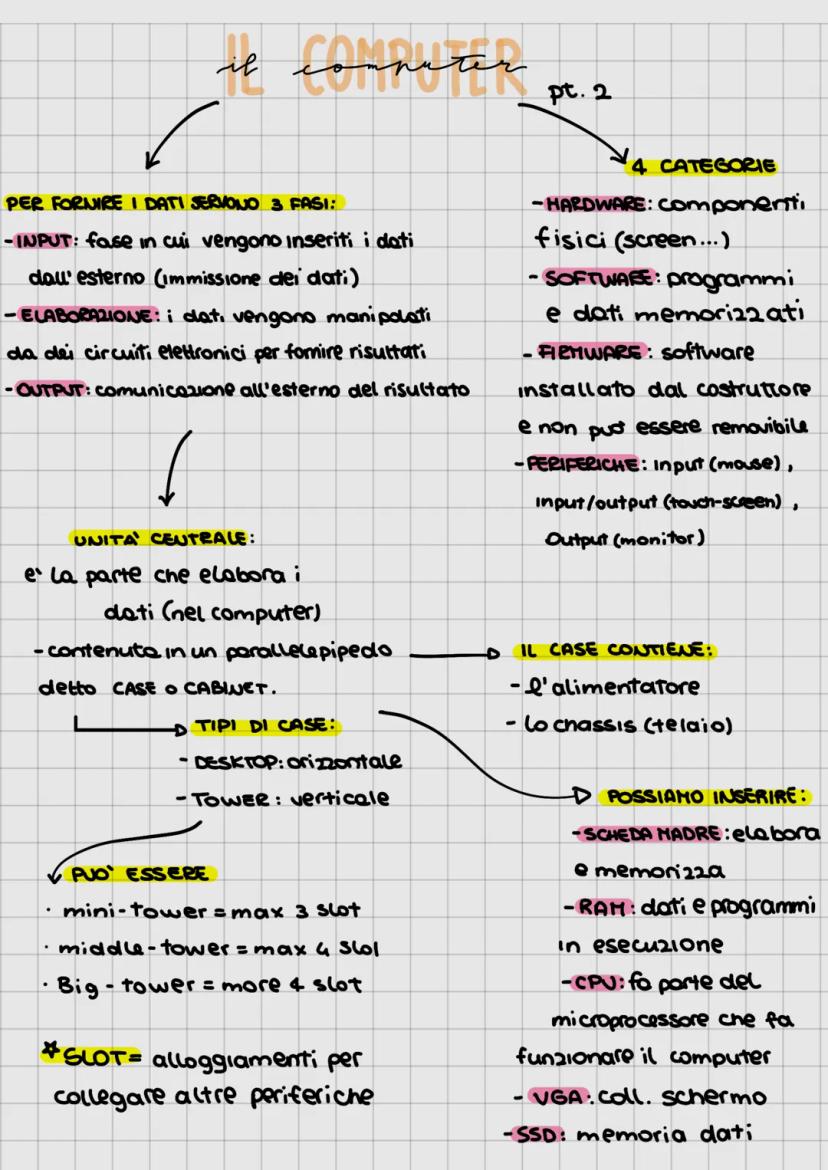 IL COMPUTER
il computer
pt. 2
PER FORNIRE I DATI SERVONO 3 FASI:
-INPUT: fase in cui vengono inseriti i dati
dall'esterno (immissione dei dati)
-ELABORAZIONE: i dati vengono manipolati
da dei circuiti elettronici per fornire risultati
-OUTPUT: comunicazione all'esterno del risultato
UNITA' CENTRALE:
e' la parte che elabora i
dati (nel computer)
-contenuta in un parallelepipedo
detto CASE o CABINET.
TIPI DI CASE:
- DESKTOP: orizzontale
- TOWER: verticale
PUO' ESSERE
· mini-tower = max 3 slot
· middle-tower = max 4 slol
· Big-tower = more 4 slot
*SLOT= alloggiamenti per
collegare altre periferiche
4 CATEGORIE
-HARDWARE: componenti
fisici (screen...)
- SOFTWARE: programmi
e dati memorizzati
- FIRMWARE: software
installato dal costruttore
e non può essere removibile
-PERIFERICHE: input (mouse),
input/output (touch-screen),
Output (monitor)
IL CASE CONTIENE:
- l'alimentatore
- lo chassis (telaio)
POSSIAMO INSERIRE:
-SCHEDA MADRE: elabora
e memorizza
-RAM: dati e programmi
in esecuzione
-CPU: fa parte del
microprocessore che fa
funzionare il computer
- VGA: coll. schermo
-SSD: memoria dati